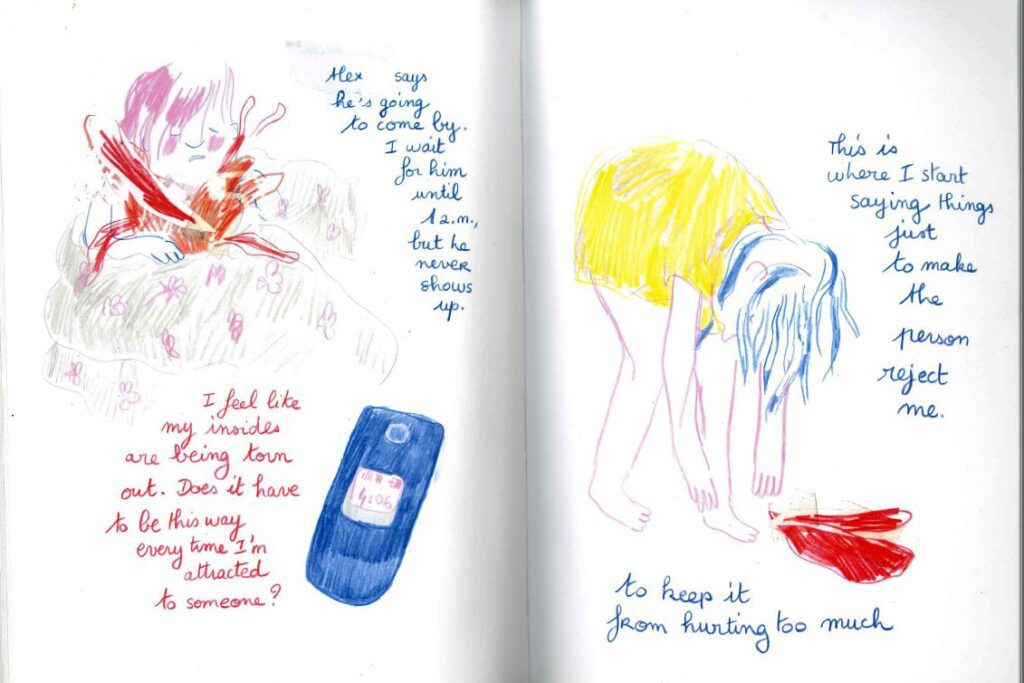 Alex says
he's going
to come by.
I wait
for him
until
12.m.,
but he
never
shows
up.
I feel like
my insides
are being torn
out. Does it have
to be this way
every time I'm
attracted
to someone?
4:06
This is
where I start
saying things
just
to make
the
person
reject
me.
to keep it
from hurting too much